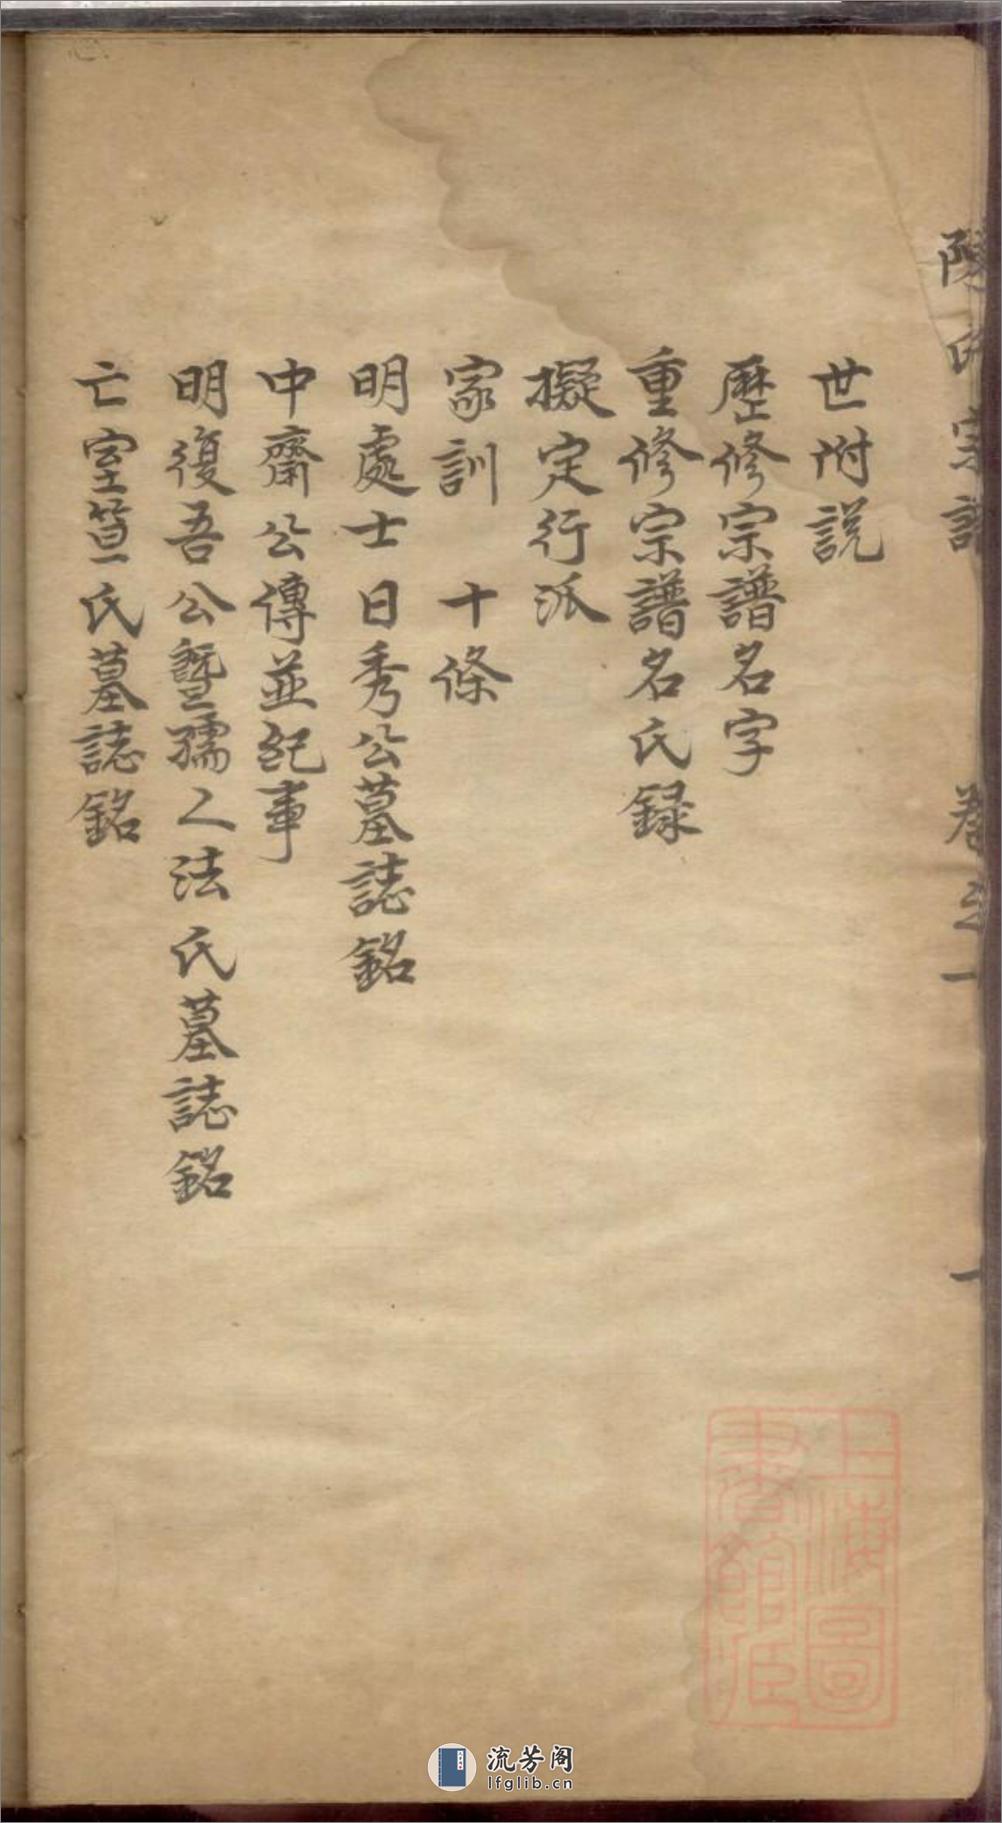 陳氏宗譜 卷之一 一
世附説
歷修宗譜名字
重修宗譜名氏録
擬定行派
家訓 十條
明處士日秀公墓誌銘
中齋公傳並紀事
明復吾公暨孺人法氏墓誌銘
亡室笪氏墓誌銘
上海圖書館藏
流芳阁
lfglib.cn